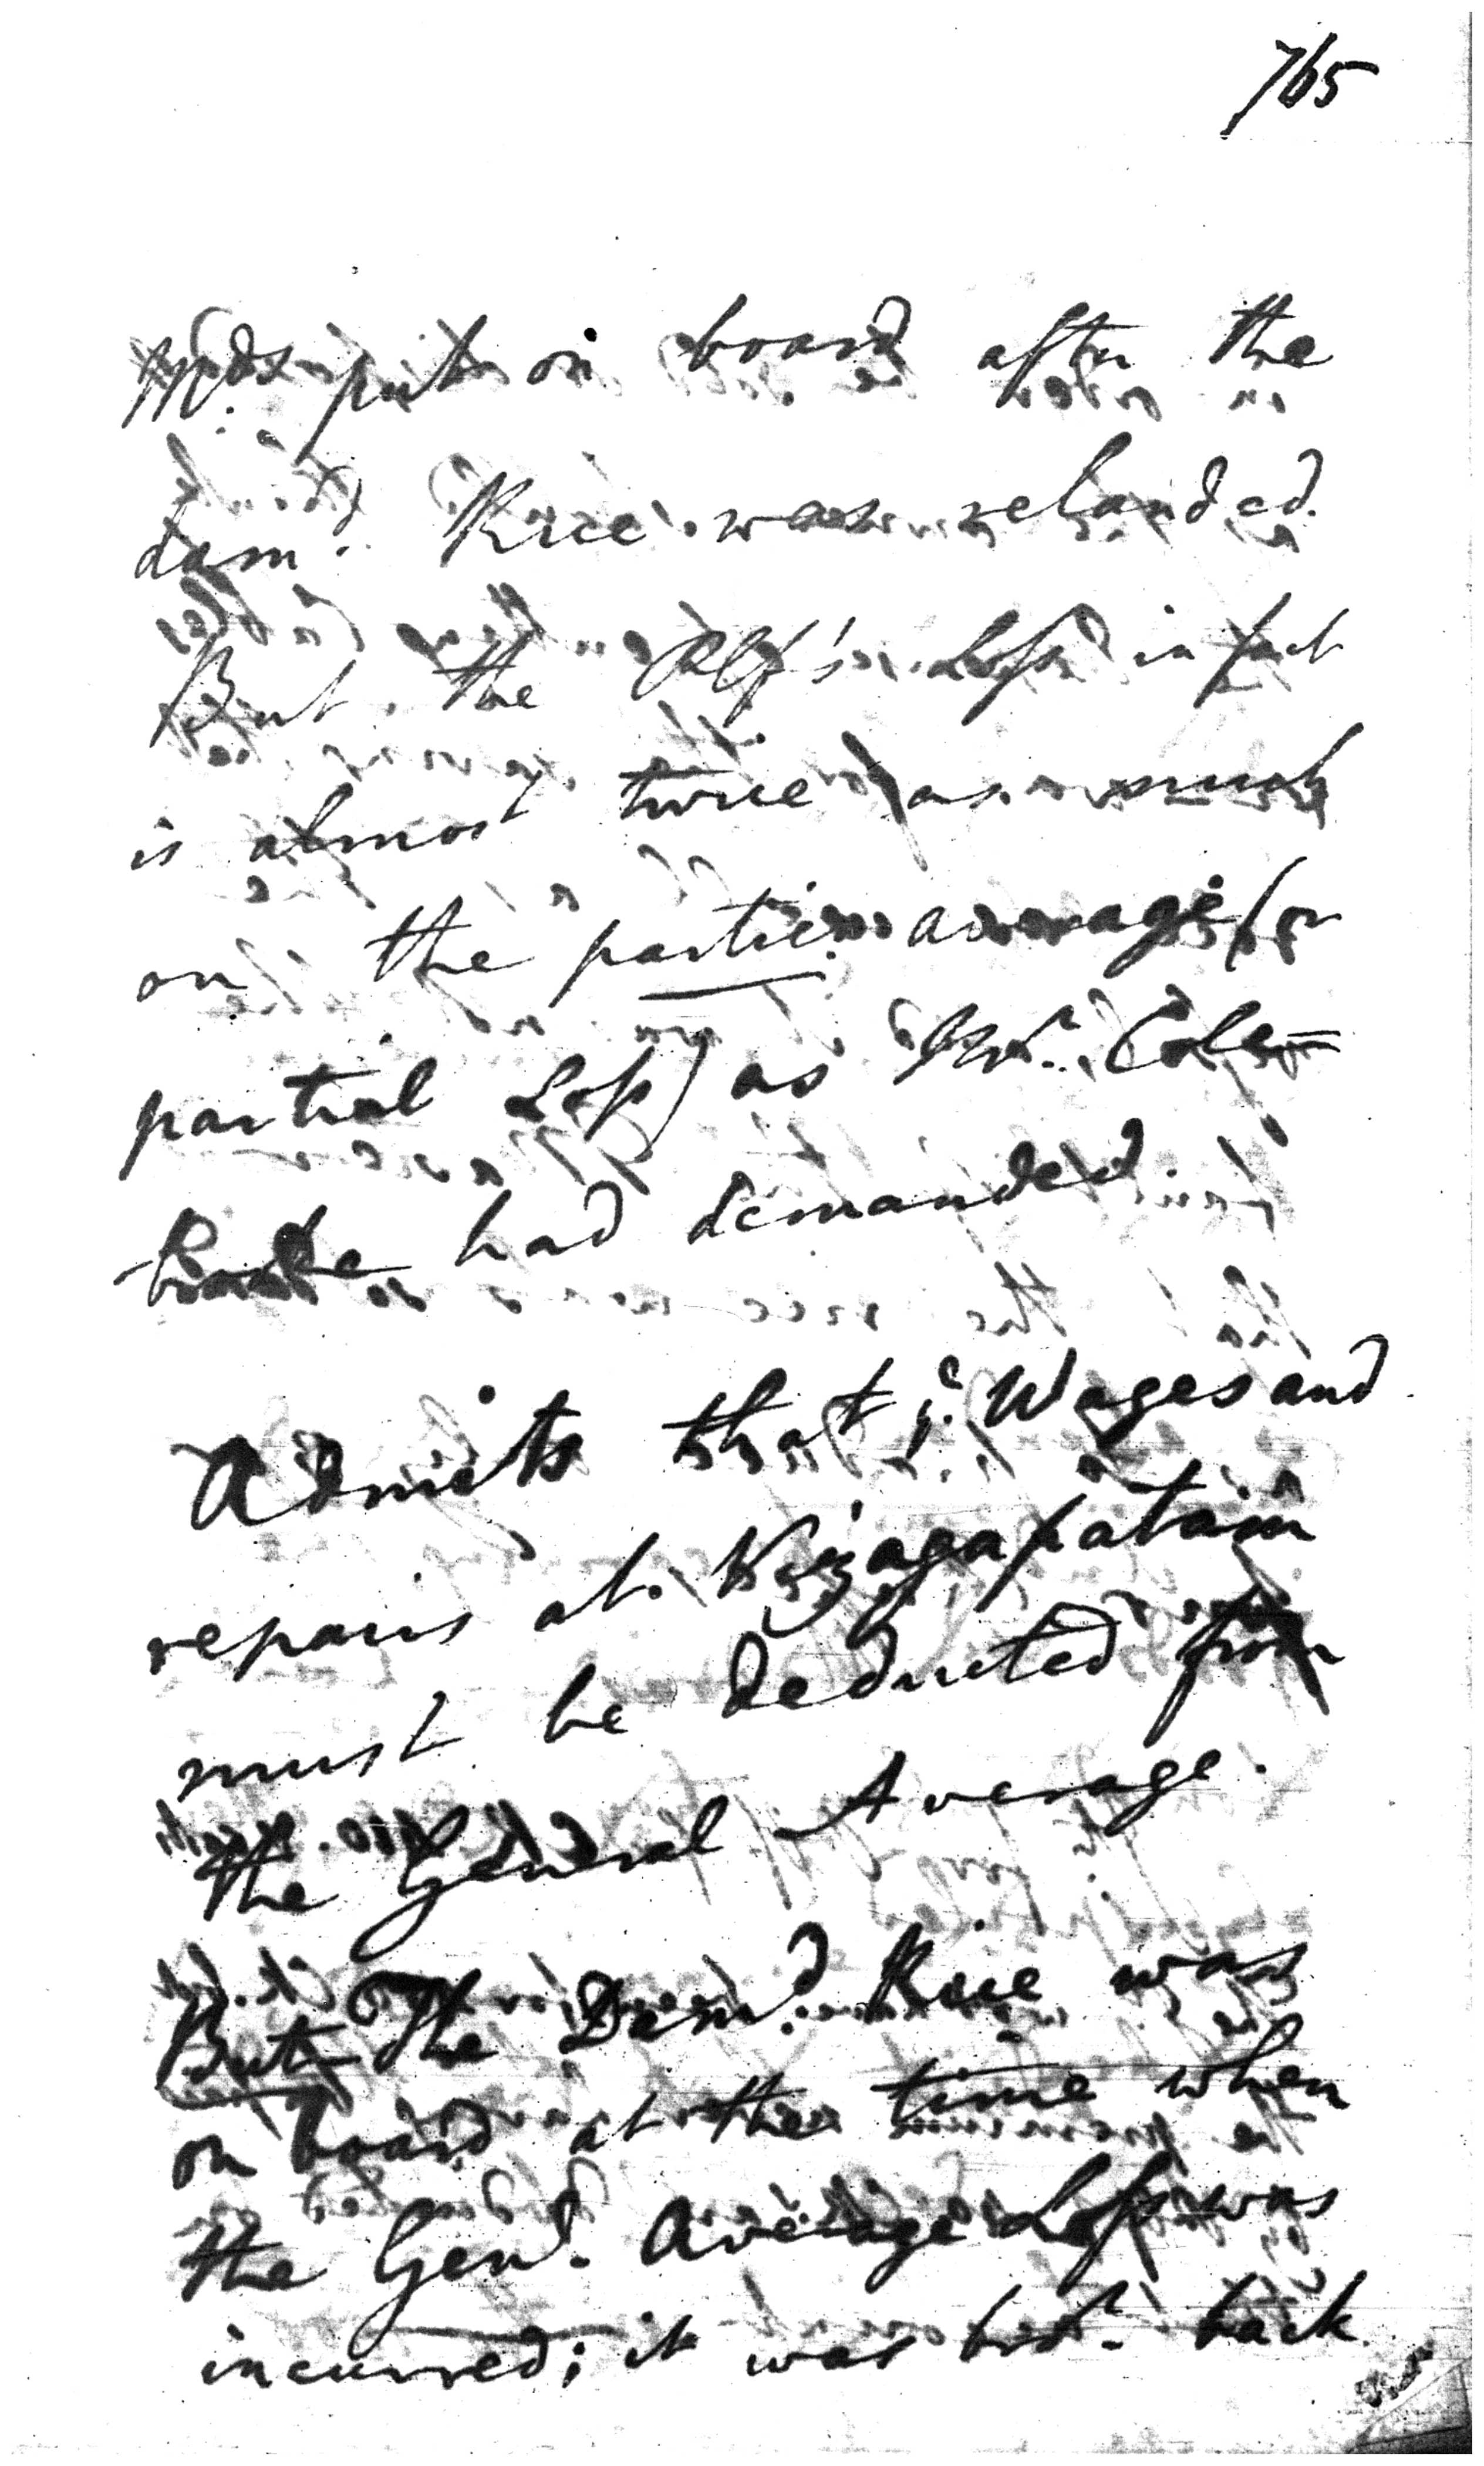 765
Mds. put on board after the
damd. Rice was relanded.
But the Plf's Loss in fact
is almost twice as much
on the partic. average (or
partial Loss) as Mr. Cole=
brooke had demanded.
Admits that ye. Wages and
repairs at Vizagapatam
must be deducted from
the General Average.
But The Damd. Rice was
on board at the time when
the Genl. Average Loss was
incurred; it was brot. back